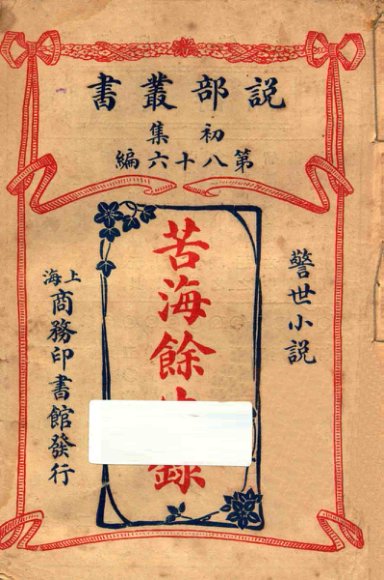 說部叢書
初集
第八十六編
警世小說
苦海餘
錄
上海
商務印書館發行